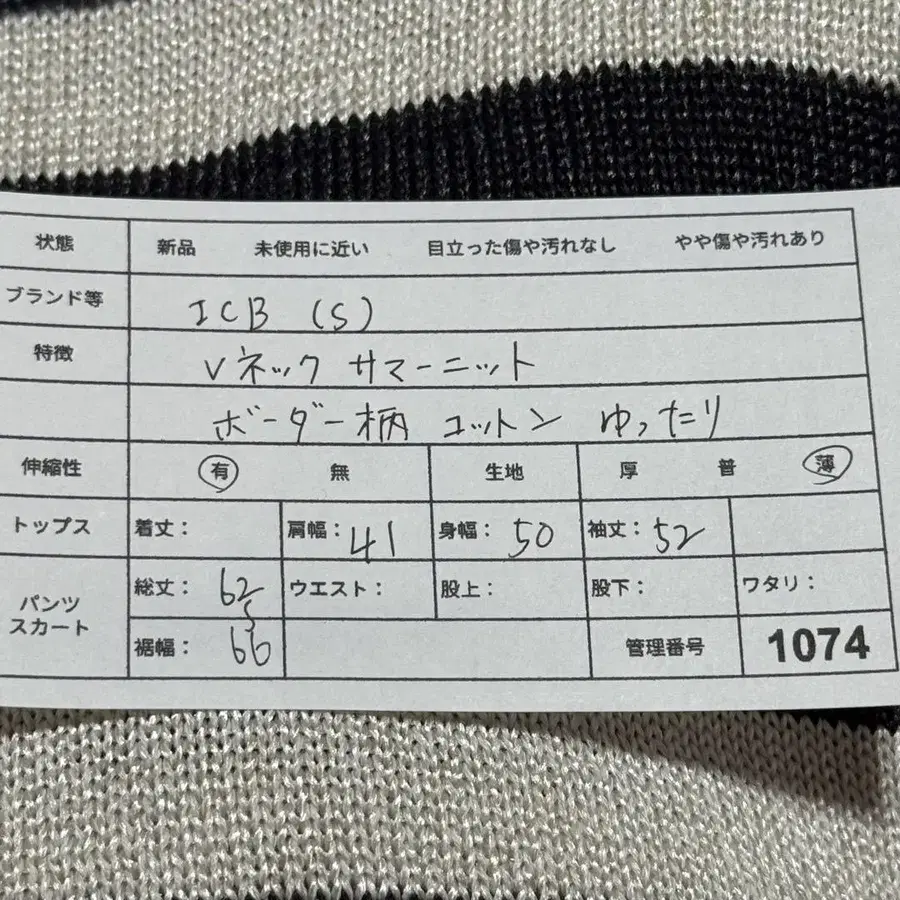 状態 新品 未使用に近い 目立った傷や汚れなし やや傷や汚れあり
ブランド等 ICB (S)
特徴 Vネック サマーニット
ボーダー柄 コットン ゆったり
伸縮性 有 無 生地 厚 普 薄
トップス 着丈: 肩幅: 41 身幅: 50 袖丈: 52
パンツ スカート 総丈: 62 ウエスト: 股上: 股下: ワタリ:
〜
裾幅: 66 管理番号 1074